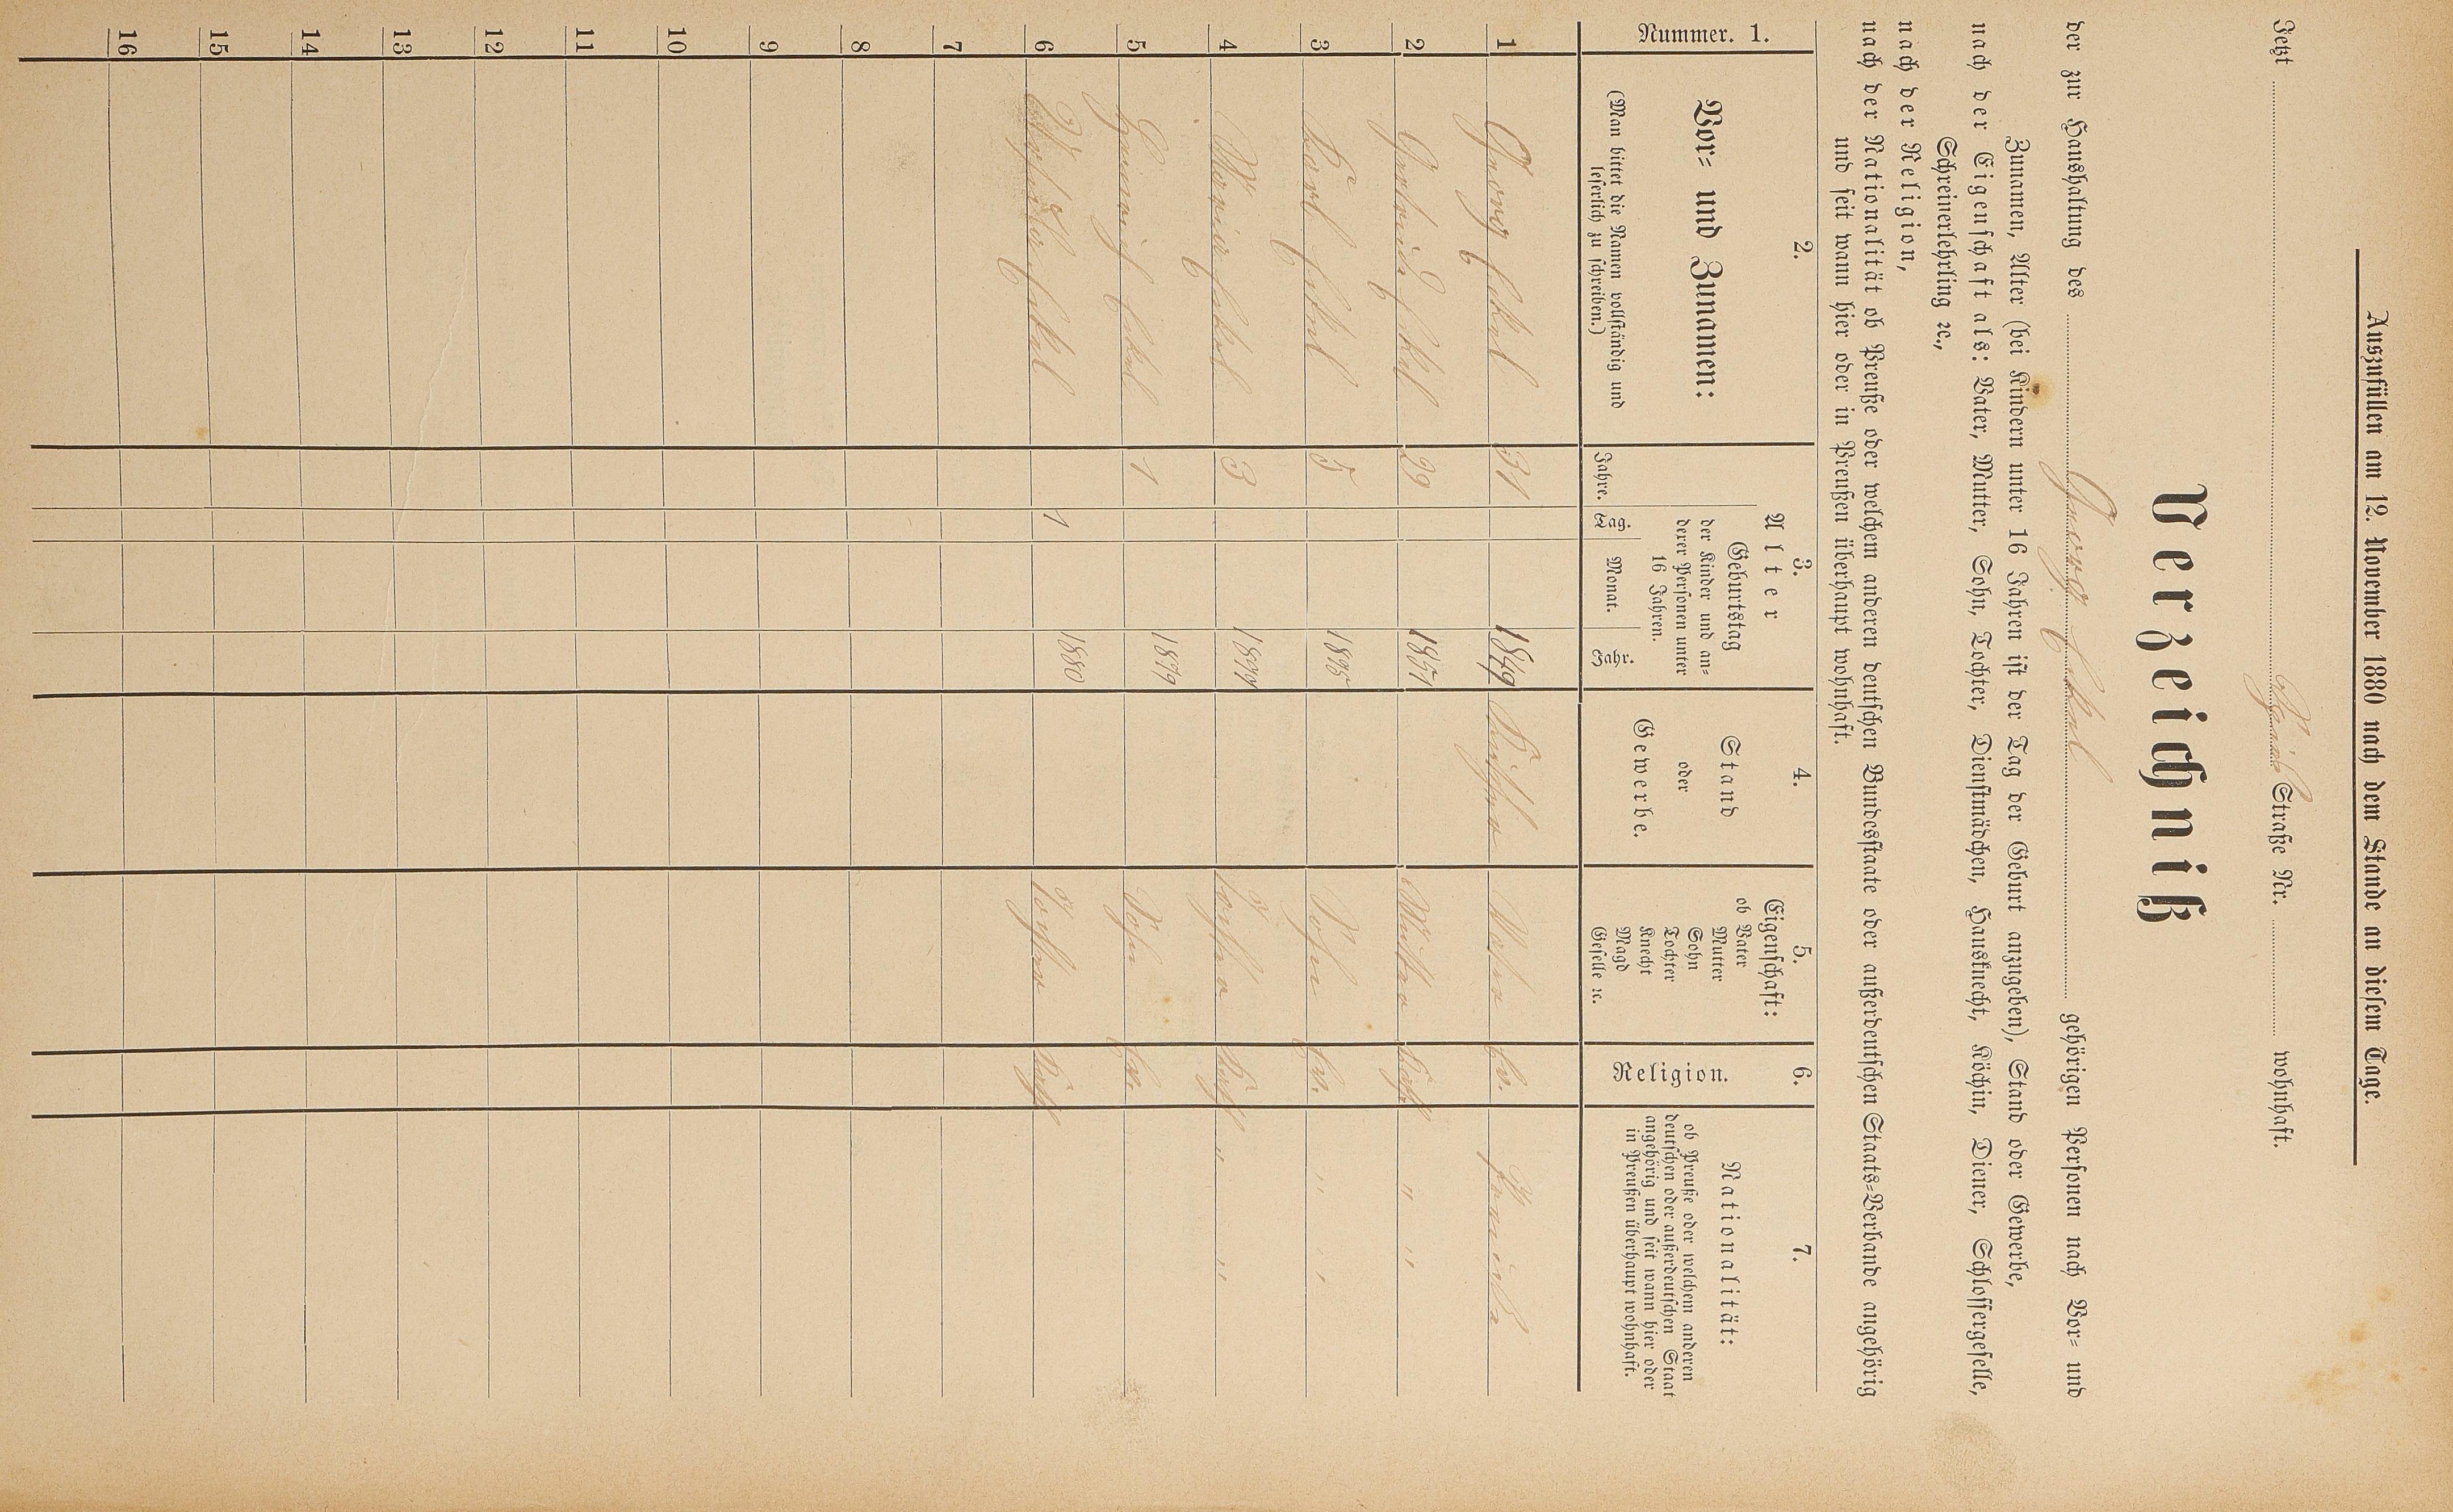 Auszufüllen am 12. November 1880 nach dem Stande an diesem Tage.
Jetzt Straße Nr. wohnhaft.
Verzeichniß
der zur Haushaltung des Georg gehörigen Personen nach Vor- und
Zunamen, Alter (bei Kindern unter 16 Jahren ist der Tag der Geburt anzugeben), Stand oder Gewerbe,
nach der Eigenschaft als: Vater, Mutter, Sohn, Tochter, Dienstmädchen, Hausknecht, Köchin, Diener, Schlossergeselle,
Schreinerlehrling ꝛc.,
nach der Religion,
nach der Nationalität ob Preuße oder welchem anderen deutschen Bundesstaate oder außerdeutschen Staats-Verbande angehörig
und seit wann hier oder in Preußen überhaupt wohnhaft.
Nummer. 1.
2.
Vor- und Zunamen:
(Man bittet die Namen vollständig und
leserlich zu schreiben.)
3.
Alter
Jahre.
Geburtstag
der Kinder und an-
derer Personen unter
16 Jahren.
Tag. Monat. Jahr.
4.
Stand
oder
Gewerbe.
5.
Eigenschaft:
ob Vater
Mutter
Sohn
Tochter
Knecht
Magd
Geselle ꝛc.
6.
Religion.
7.
Nationalität:
ob Preuße oder welchem anderen
deutschen oder außerdeutschen Staat
angehörig und seit wann hier oder
in Preußen überhaupt wohnhaft.
1 Georg 31 1849 Vater Ev.
2 Gertrud 29 1851 Mutter Kath. " "
3 Karl 5 1875 Sohn Ev. " "
4 Maria 3 1877 Tochter Kath " "
5 Heinrich 1 1879 Sohn Ev.
6 1 1880 Tochter Kath
7
8
9
10
11
12
13
14
15
16